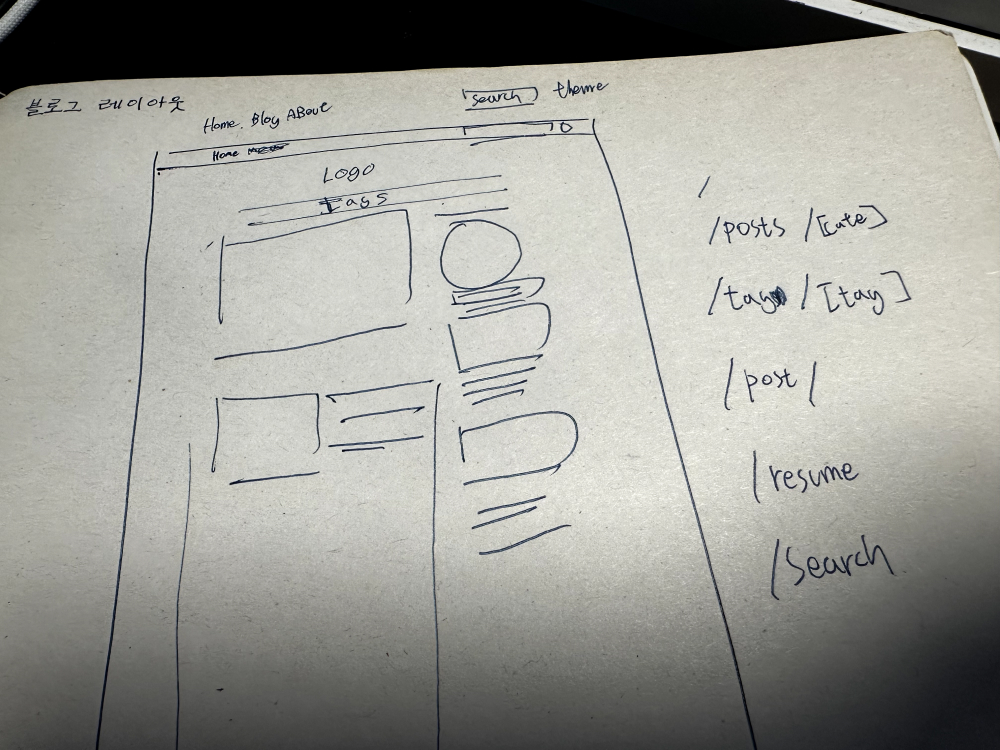 블로그 레이아웃
Home. Blog ABout
search theme
Home
Logo
Tags
/
/posts /[cate]
/tag /[tag]
/post/
/resume
/search